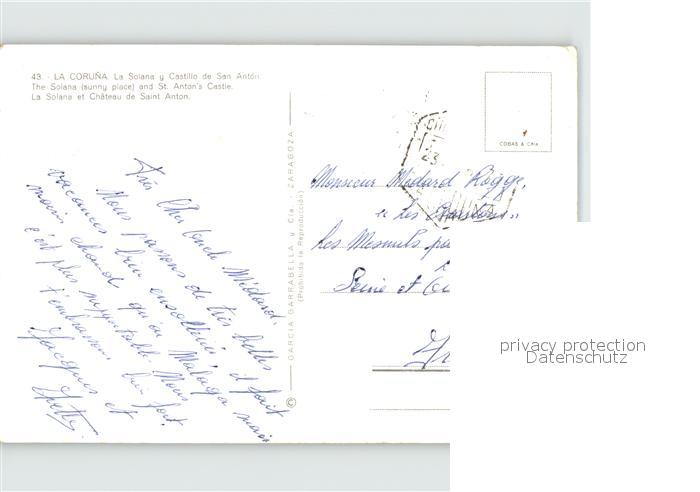 43. - LA CORUÑA. La Solana y Castillo de San Antón.
The Solana (sunny place) and St. Anton's Castle.
La Solana et Château de Saint Anton.
COBAS & CHA
GARCIA GARRABELLA y Cía. - ZARAGOZA
(Prohibida la Reproducción)
©
Très Cher Oncle Médard.
Nous passons de très belles
vacances bien ensoleillées il fait
moins chaud qu'en Malaga mais
c'est plus supportable. Nous
t'embrassons bien fort.
Jacques et
Yvette.
Monsieur Médard Rogge,
"Les
Les Mesnuls pa
Seine et
privacy protection
Datenschutz